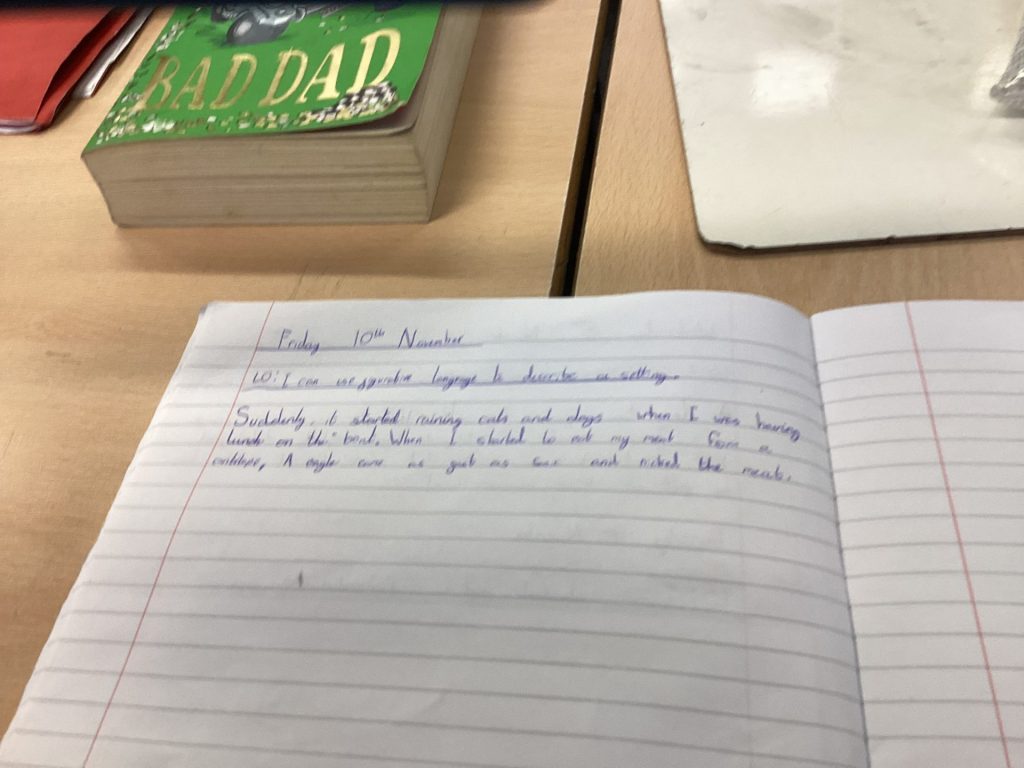 BAD DAD
Friday 10th November
LO: I can use figurative language to describe a setting.
Suddenly, it started raining cats and dogs when I was having
lunch on the boat. When I started to eat my meat from a
antelope, A eagle came as fast as and nicked the meat.